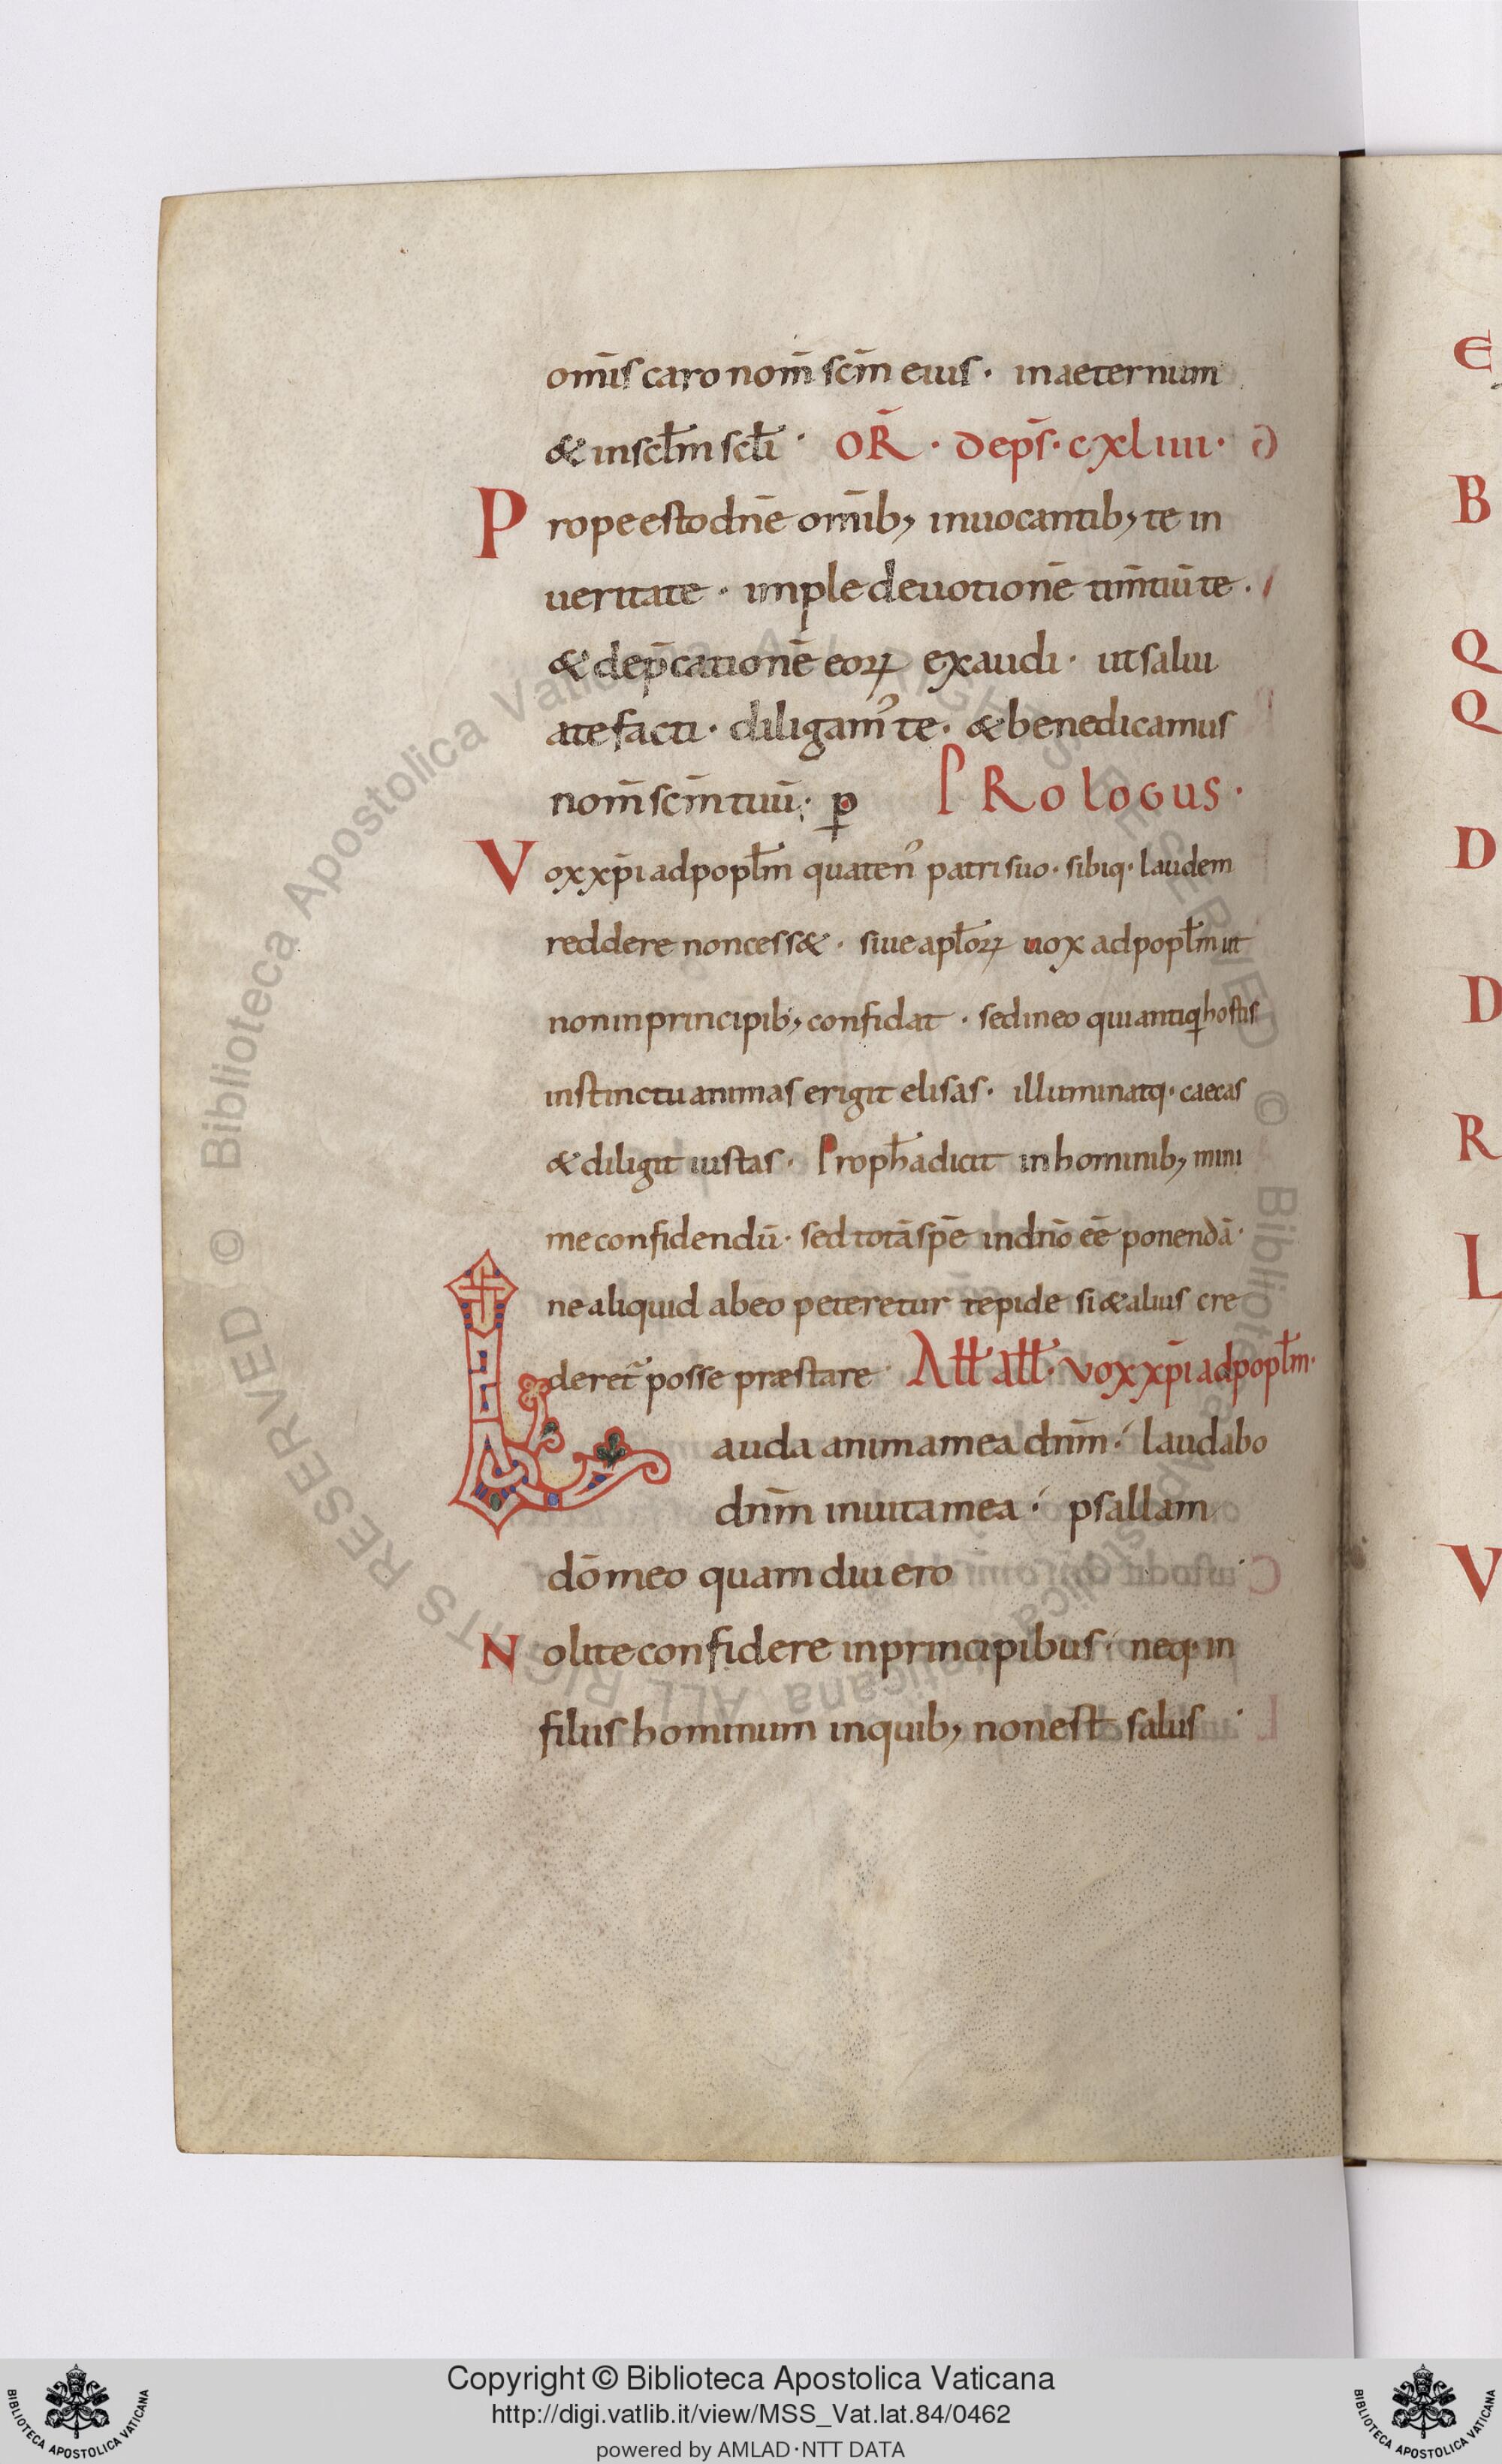 omīs caro nom̄ scm̄ eius · in aeternum
& in scłm scłi · OR̄ · de ps̄ · cxliiii ·
Prope esto dnē om̄ib; inuocantib; te in
ueritate · imple deuotionē tim̄tiū te ·
& dep̄cationē eoꝝ exaudi · ut salui
a te facti · diligam᾽ te · & benedicamus
nom̄ scm̄ tuū ; p̲ PRologus ·
Vox xp̄i ad popłm quaten᾽ patri suo · sibiq · laudem
reddere non cess& · siue apłoꝝ uox ad popłm ut
non in principib; confidat · sed in eo qui antiqi hostis
instinctu animas erigit elisas · illuminatq · caecas
& diligit iustas · Propħa dicit in hominib; mini
me confidendū · sed totā spē in dnō eē ponendā ·
ne aliquid ab eo peteretur tepide si & alius cre
deret᷑ posse præstare · Ałł ałł · vox xp̄i ad popłm ·
Lauda anima mea dnm̄ · laudabo
dnm̄ in uita mea · psallam
dō meo quam diu ero
Nolite confidere in principibus · neq · in
filiis hominum in quib; non est salus
E
B
Q
Q
D
D
R
L
V
Biblioteca Apostolica Vaticana ALL RIGHTS RESERVED ©
Copyright © Biblioteca Apostolica Vaticana
http://digi.vatlib.it/view/MSS_Vat.lat.84/0462
powered by AMLAD·NTT DATA
BIBLIOTECA APOSTOLICA VATICANA
BIBLIOTECA APOSTOLICA VATICANA